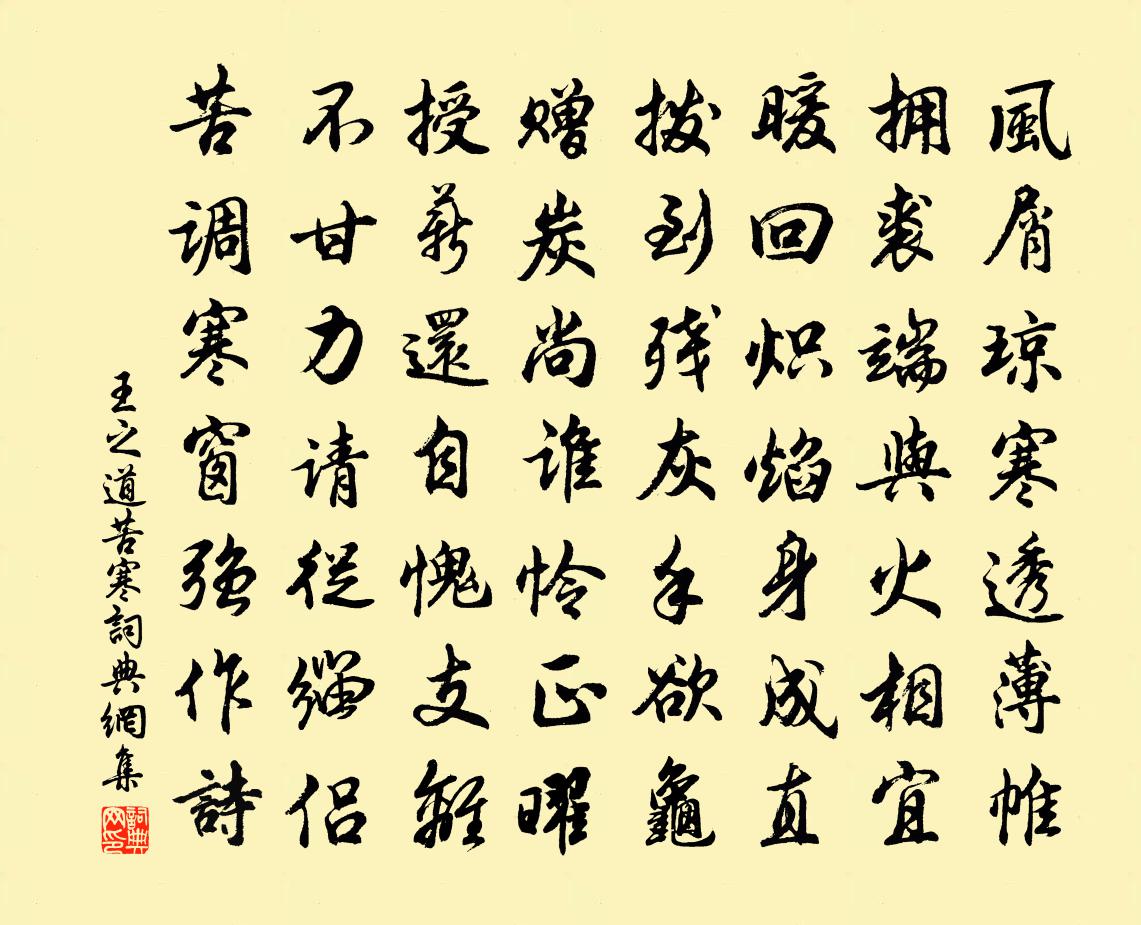 風屑琼寒透薄帷
拥裘端與火相宜
暖回炽焰身成直
拨到残灰手欲龜
赠炭尚谁怜正曜
授薪還自愧支離
不甘力请從缁侣
苦调寒窗强作詩
王之道苦寒詞典網集
詞典网印